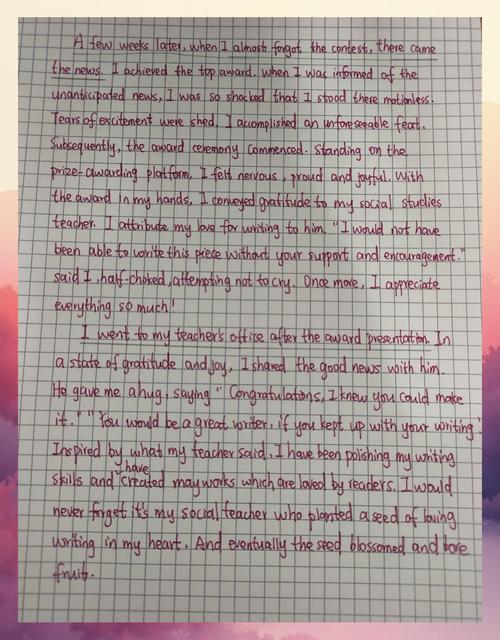 A few weeks later, when I almost forgot the contest, there came
the news. I achieved the top award. When I was informed of the
unanticipated news, I was so shocked that I stood there motionless.
Tears of excitement were shed. I accomplished an unforeseeable feat.
Subsequently, the award ceremony commenced. Standing on the
prize-awarding platform, I felt nervous, proud and joyful. With
the award in my hands, I conveyed gratitude to my social studies
teacher. I attribute my love for writing to him. "I would not have
been able to write this piece without your support and encouragement."
said I, half-choked, attempting not to cry. Once more, I appreciate
everything so much!
I went to my teacher's office after the award presentation. In
a state of gratitude and joy, I shared the good news with him.
He gave me a hug, saying "Congratulations, I knew you could make
it." "You would be a great writer, if you kept up with your writing."
Inspired by what my teacher said, I have been polishing my writing
have
skills and created many works which are loved by readers. I would
never forget it's my social teacher who planted a seed of loving
writing in my heart. And eventually the seed blossomed and bore
fruit.